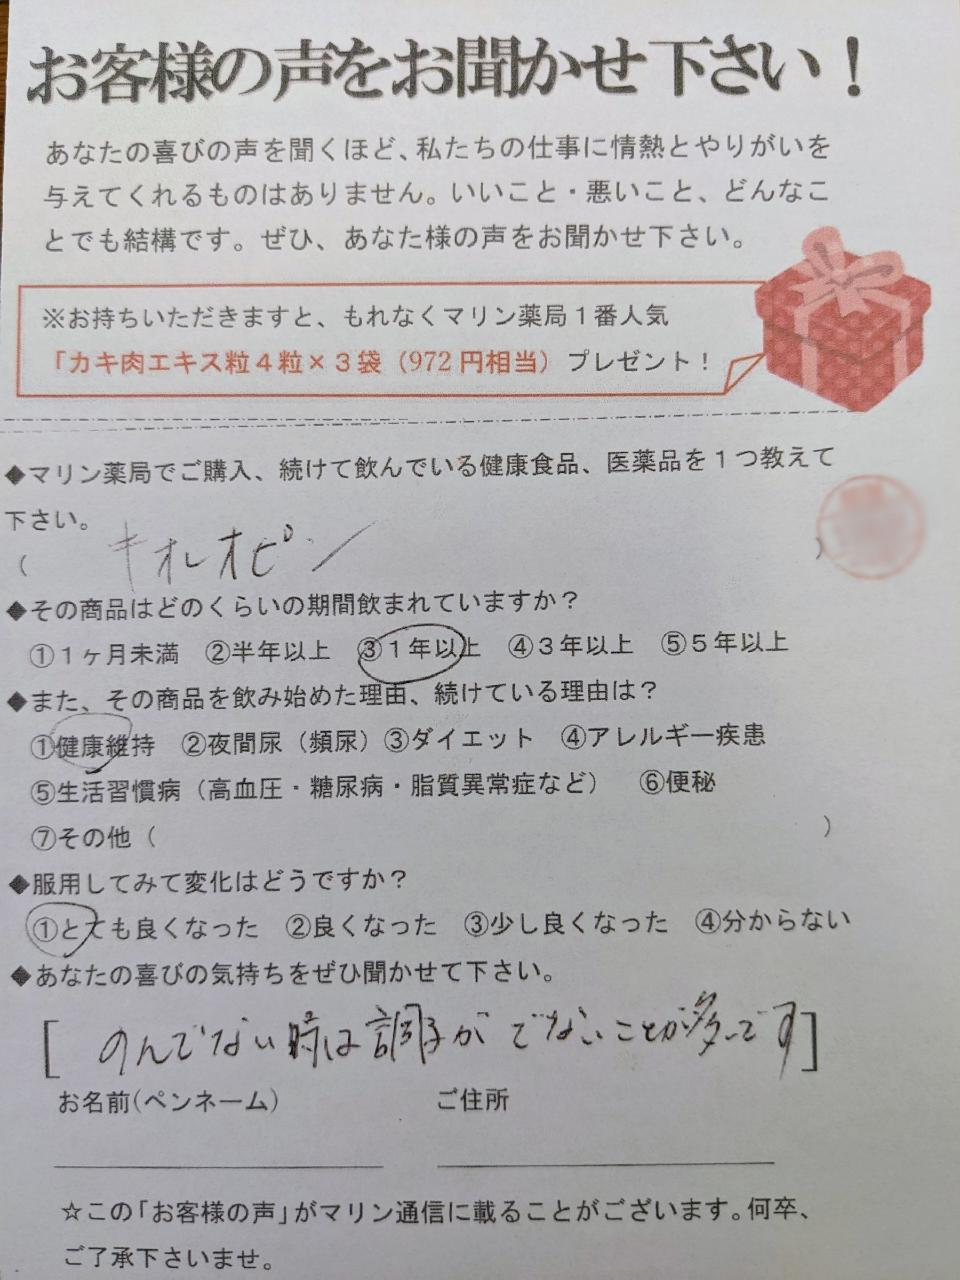 お客様の声をお聞かせ下さい！
あなたの喜びの声を聞くほど、私たちの仕事に情熱とやりがいを
与えてくれるものはありません。いいこと・悪いこと、どんなこ
とでも結構です。ぜひ、あなた様の声をお聞かせ下さい。
※お持ちいただきますと、もれなくマリン薬局１番人気
「カキ肉エキス粒４粒×３袋（972円相当）プレゼント！
◆マリン薬局でご購入、続けて飲んでいる健康食品、医薬品を１つ教えて
下さい。
（ キオレオピン ）
◆その商品はどのくらいの期間飲まれていますか？
①１ヶ月未満 ②半年以上 ③１年以上 ④３年以上 ⑤５年以上
◆また、その商品を飲み始めた理由、続けている理由は？
①健康維持 ②夜間尿（頻尿）③ダイエット ④アレルギー疾患
⑤生活習慣病（高血圧・糖尿病・脂質異常症など） ⑥便秘
⑦その他（ ）
◆服用してみて変化はどうですか？
①とても良くなった ②良くなった ③少し良くなった ④分からない
◆あなたの喜びの気持ちをぜひ聞かせて下さい。
[ のんでない時は調子がでないことが多いです ]
お名前(ペンネーム) ご住所
☆この「お客様の声」がマリン通信に載ることがございます。何卒、
ご了承下さいませ。